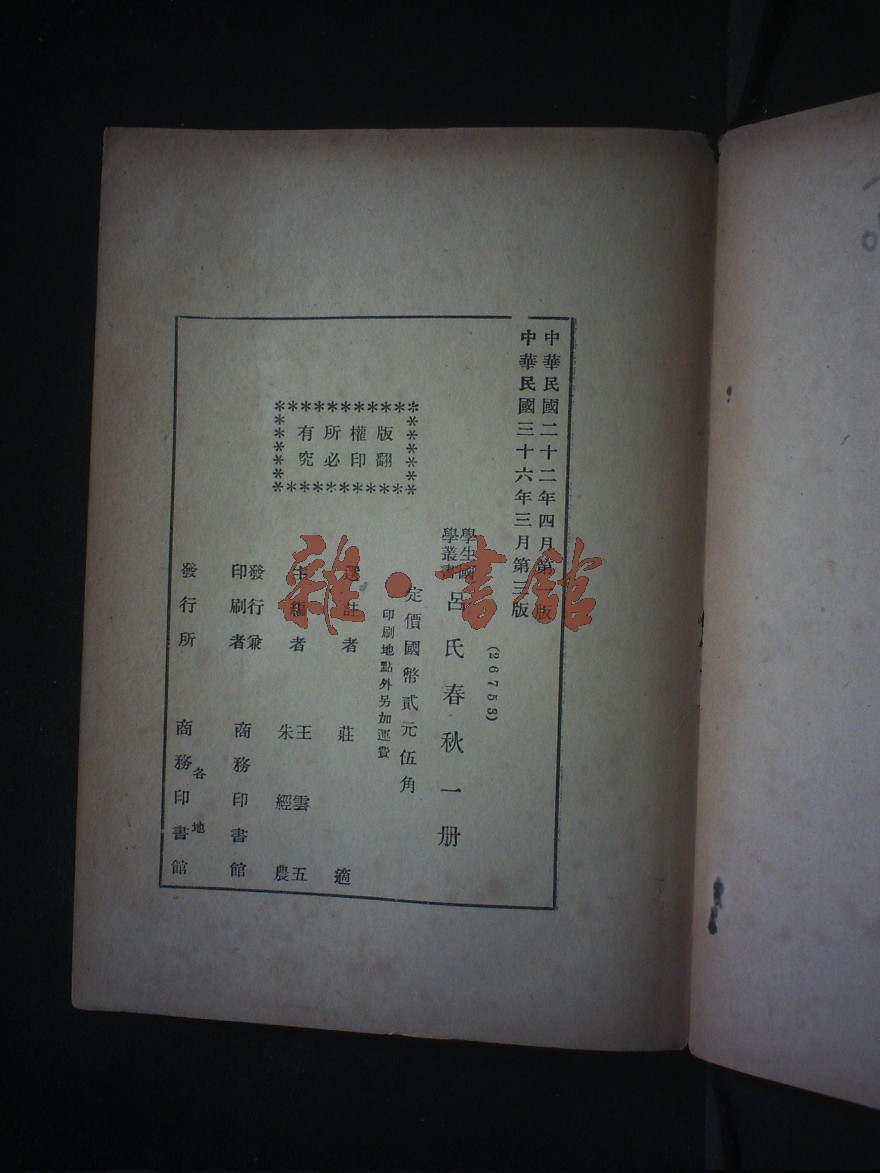 中華民國二十二年四月第一版
中華民國三十六年三月第三版
(26753)
學生國
學叢書
呂氏春秋一册
定價國幣貳元伍角
印刷地點外另加運費
版權所有
翻印必究
選註者 莊適
主編者 王雲五
朱經農
發行兼
印刷者 商務印書館
發行所 各地
商務印書館
雜·書館